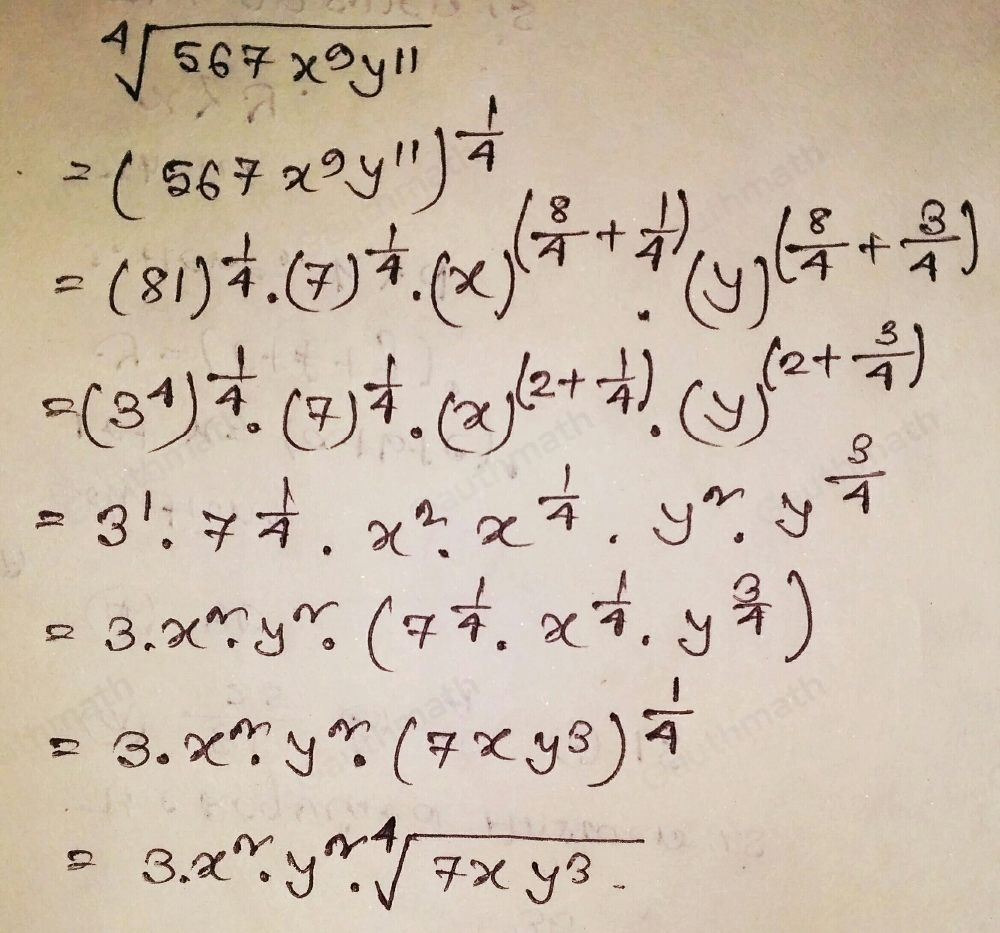 ∜(567 x⁹y¹¹)
= (567 x⁹y¹¹)^(1/4)
= (81)^(1/4) . (7)^(1/4) . (x)^(8/4 + 1/4) . (y)^(8/4 + 3/4)
= (3⁴)^(1/4) . (7)^(1/4) . (x)^(2 + 1/4) . (y)^(2 + 3/4)
= 3¹ . 7^(1/4) . x² . x^(1/4) . y² . y^(3/4)
= 3 . x² . y² . (7^(1/4) . x^(1/4) . y^(3/4))
= 3 . x² . y² . (7xy³)^(1/4)
= 3 . x² . y² . ∜(7xy³) .